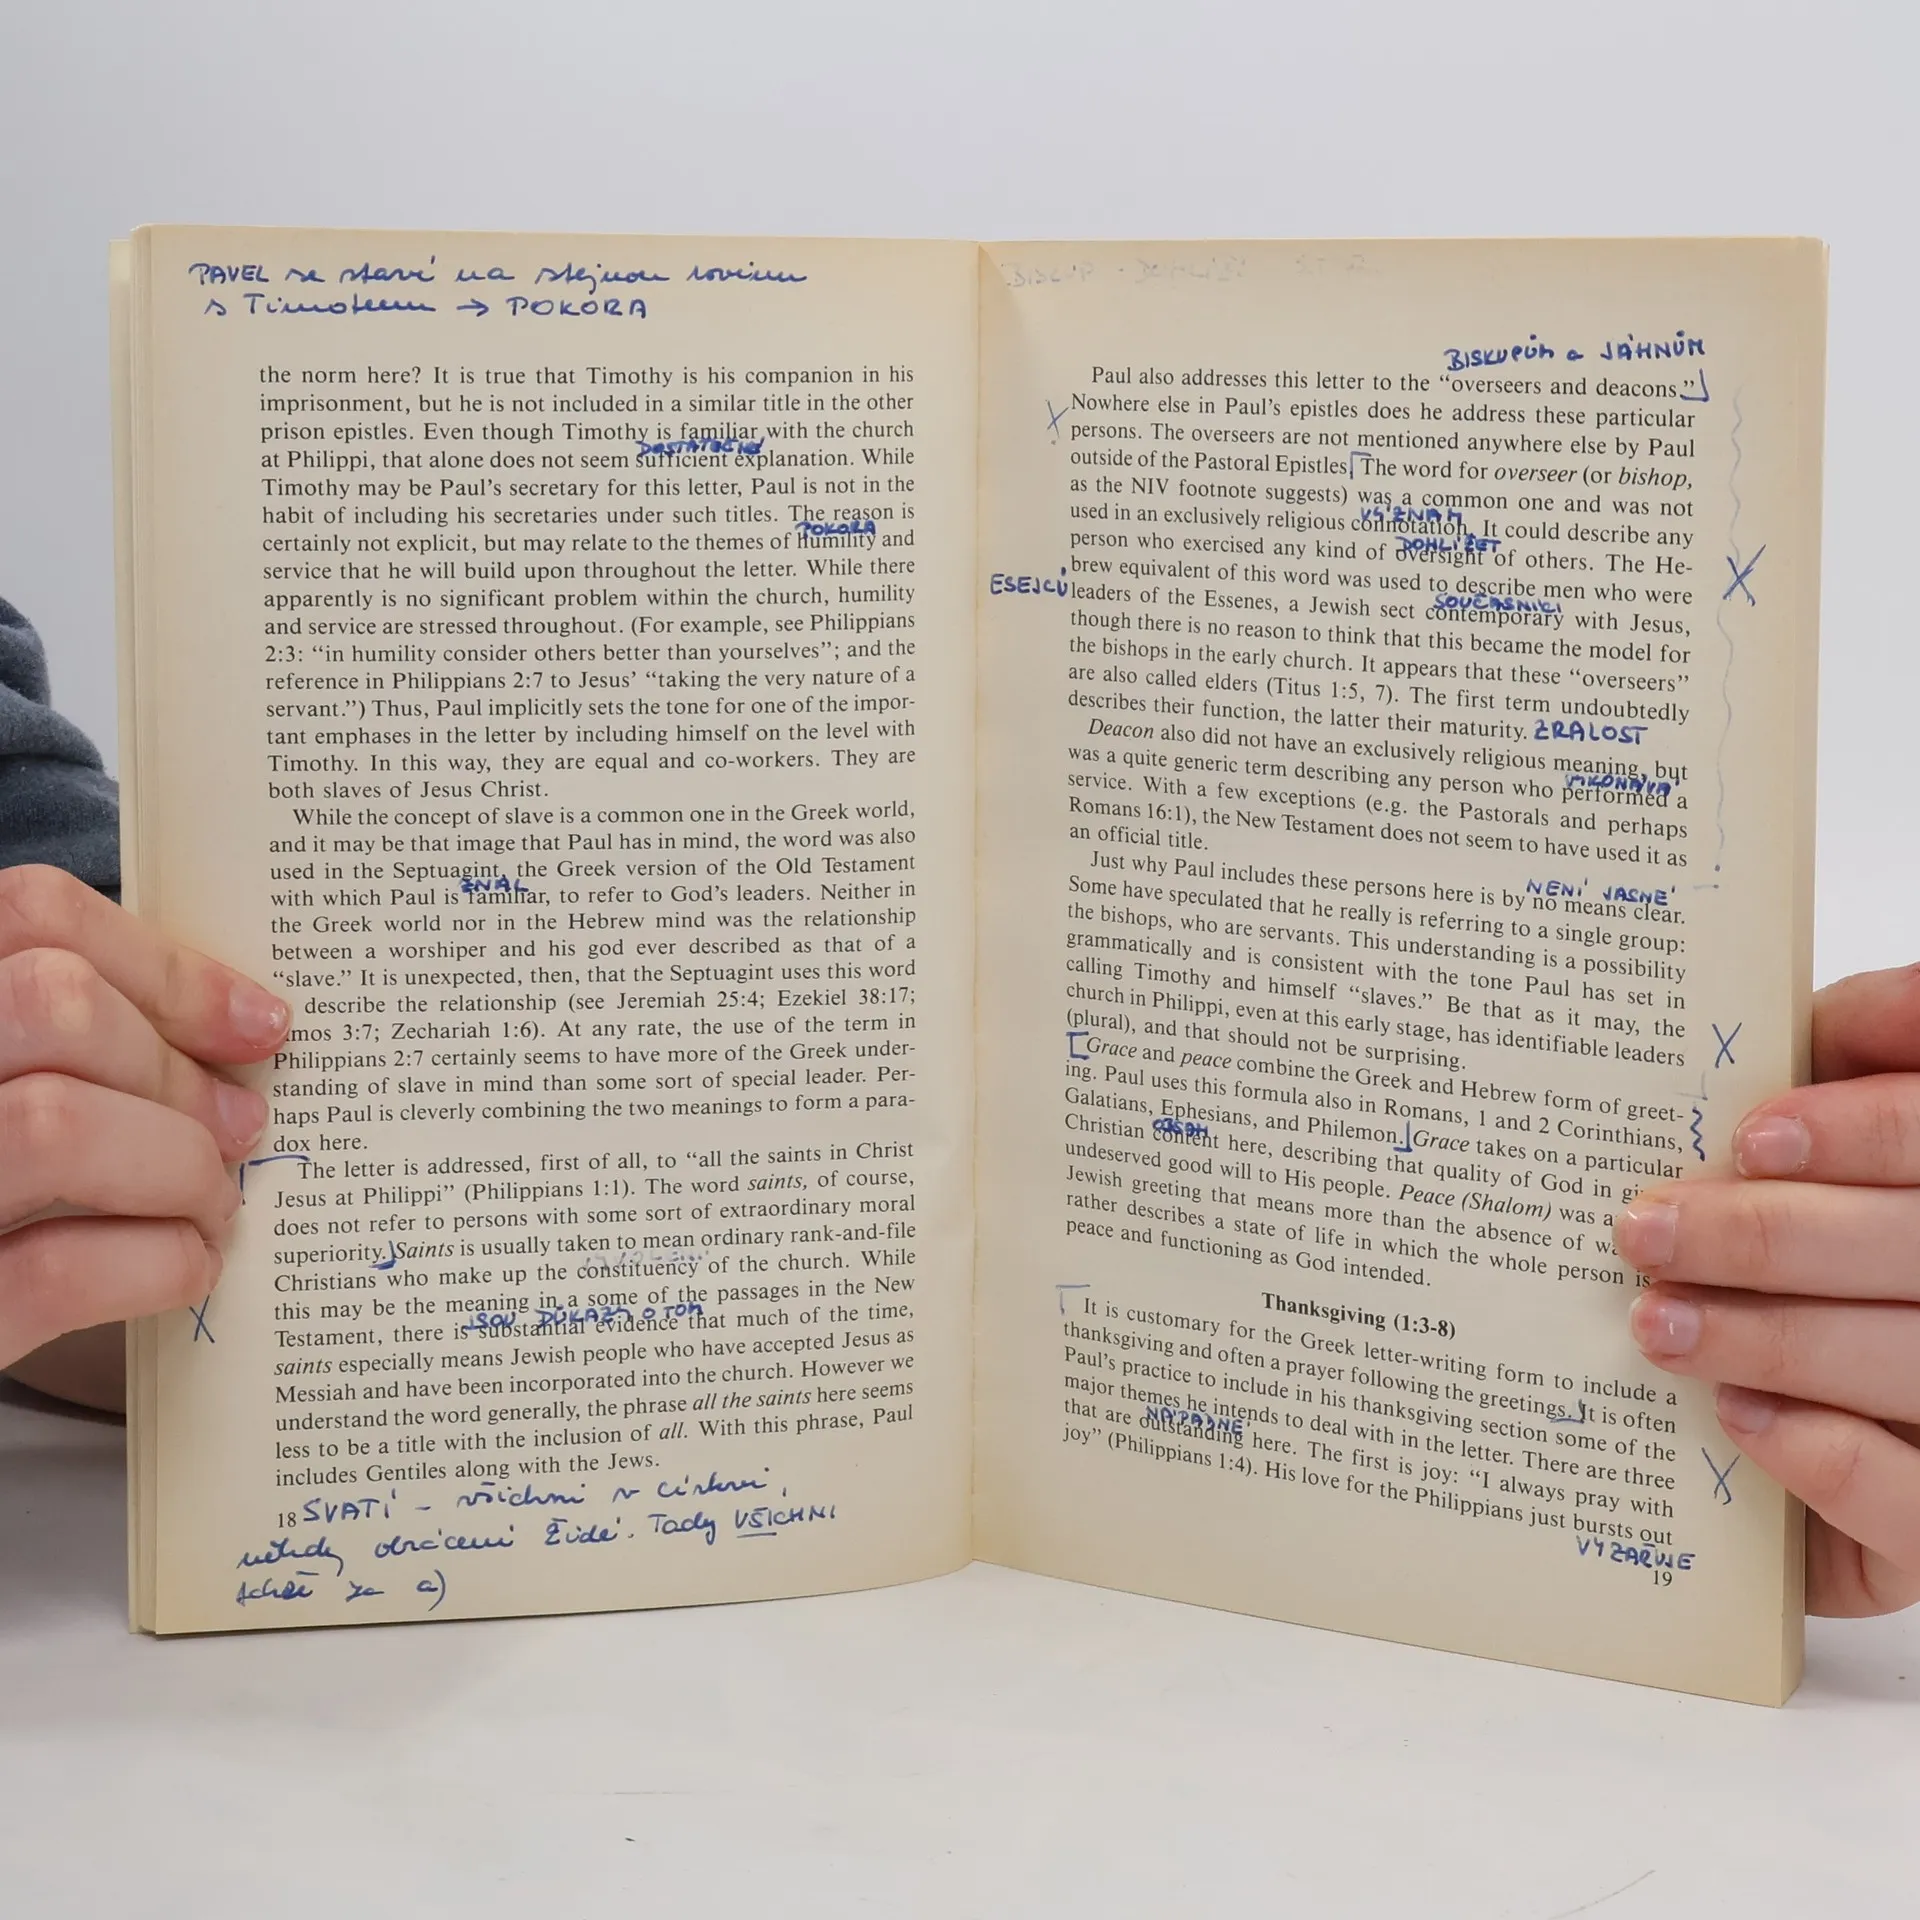 PAVEL se staví na stejnou rovinu
s Timoteem → POKORA
the norm here? It is true that Timothy is his companion in his
imprisonment, but he is not included in a similar title in the other
prison epistles. Even though Timothy is familiar with the church
DOSTATEČNÉ
at Philippi, that alone does not seem sufficient explanation. While
Timothy may be Paul's secretary for this letter, Paul is not in the
habit of including his secretaries under such titles. The reason is
POKORA
certainly not explicit, but may relate to the themes of humility and
service that he will build upon throughout the letter. While there
apparently is no significant problem within the church, humility
and service are stressed throughout. (For example, see Philippians
2:3: “in humility consider others better than yourselves”; and the
reference in Philippians 2:7 to Jesus' “taking the very nature of a
servant.”) Thus, Paul implicitly sets the tone for one of the impor-
tant emphases in the letter by including himself on the level with
Timothy. In this way, they are equal and co-workers. They are
both slaves of Jesus Christ.
While the concept of slave is a common one in the Greek world,
and it may be that image that Paul has in mind, the word was also
used in the Septuagint, the Greek version of the Old Testament
ZNAL
with which Paul is familiar, to refer to God's leaders. Neither in
the Greek world nor in the Hebrew mind was the relationship
between a worshiper and his god ever described as that of a
“slave.” It is unexpected, then, that the Septuagint uses this word
describe the relationship (see Jeremiah 25:4; Ezekiel 38:17;
mos 3:7; Zechariah 1:6). At any rate, the use of the term in
Philippians 2:7 certainly seems to have more of the Greek under-
standing of slave in mind than some sort of special leader. Per-
haps Paul is cleverly combining the two meanings to form a para-
dox here.
The letter is addressed, first of all, to “all the saints in Christ
Jesus at Philippi” (Philippians 1:1). The word saints, of course,
does not refer to persons with some sort of extraordinary moral
superiority. Saints is usually taken to mean ordinary rank-and-file
Christians who make up the constituency of the church. While
this may be the meaning in a some of the passages in the New
JSOU DŮKAZY O TOM
X Testament, there is substantial evidence that much of the time,
saints especially means Jewish people who have accepted Jesus as
Messiah and have been incorporated into the church. However we
understand the word generally, the phrase all the saints here seems
less to be a title with the inclusion of all. With this phrase, Paul
includes Gentiles along with the Jews.
18 SVATÍ – všichni v církvi,
někdy obrácení Židé. Tady VŠICHNI
za a)
BISKUPŮM a JÁHNŮM
Paul also addresses this letter to the “overseers and deacons.”
X Nowhere else in Paul's epistles does he address these particular
persons. The overseers are not mentioned anywhere else by Paul
outside of the Pastoral Epistles. The word for overseer (or bishop,
as the NIV footnote suggests) was a common one and was not
VÝZNAM
used in an exclusively religious connotation. It could describe any
DOHLÍŽET
person who exercised any kind of oversight of others. The He-
brew equivalent of this word was used to describe men who were X
SOUČASNÍKI
ESEJCŮ leaders of the Essenes, a Jewish sect contemporary with Jesus,
though there is no reason to think that this became the model for
the bishops in the early church. It appears that these “overseers”
are also called elders (Titus 1:5, 7). The first term undoubtedly
describes their function, the latter their maturity. ZRALOST
Deacon also did not have an exclusively religious meaning, but
VYKONÁVÁ
was a quite generic term describing any person who performed a
service. With a few exceptions (e.g. the Pastorals and perhaps
Romans 16:1), the New Testament does not seem to have used it as
an official title.
NENÍ JASNÉ
Just why Paul includes these persons here is by no means clear.
Some have speculated that he really is referring to a single group:
the bishops, who are servants. This understanding is a possibility
grammatically and is consistent with the tone Paul has set in
calling Timothy and himself “slaves.” Be that as it may, the
church in Philippi, even at this early stage, has identifiable leaders X
(plural), and that should not be surprising.
Grace and peace combine the Greek and Hebrew form of greet-
ing. Paul uses this formula also in Romans, 1 and 2 Corinthians,
Galatians, Ephesians, and Philemon. Grace takes on a particular
OBSAH
Christian content here, describing that quality of God in gi
undeserved good will to His people. Peace (Shalom) was a
Jewish greeting that means more than the absence of wa
rather describes a state of life in which the whole person is
peace and functioning as God intended.
Thanksgiving (1:3-8)
It is customary for the Greek letter-writing form to include a
thanksgiving and often a prayer following the greetings. It is often
Paul's practice to include in his thanksgiving section some of the
major themes he intends to deal with in the letter. There are three X
NÁPADNÉ
that are outstanding here. The first is joy: “I always pray with
joy” (Philippians 1:4). His love for the Philippians just bursts out
VYZAŘUJE
19